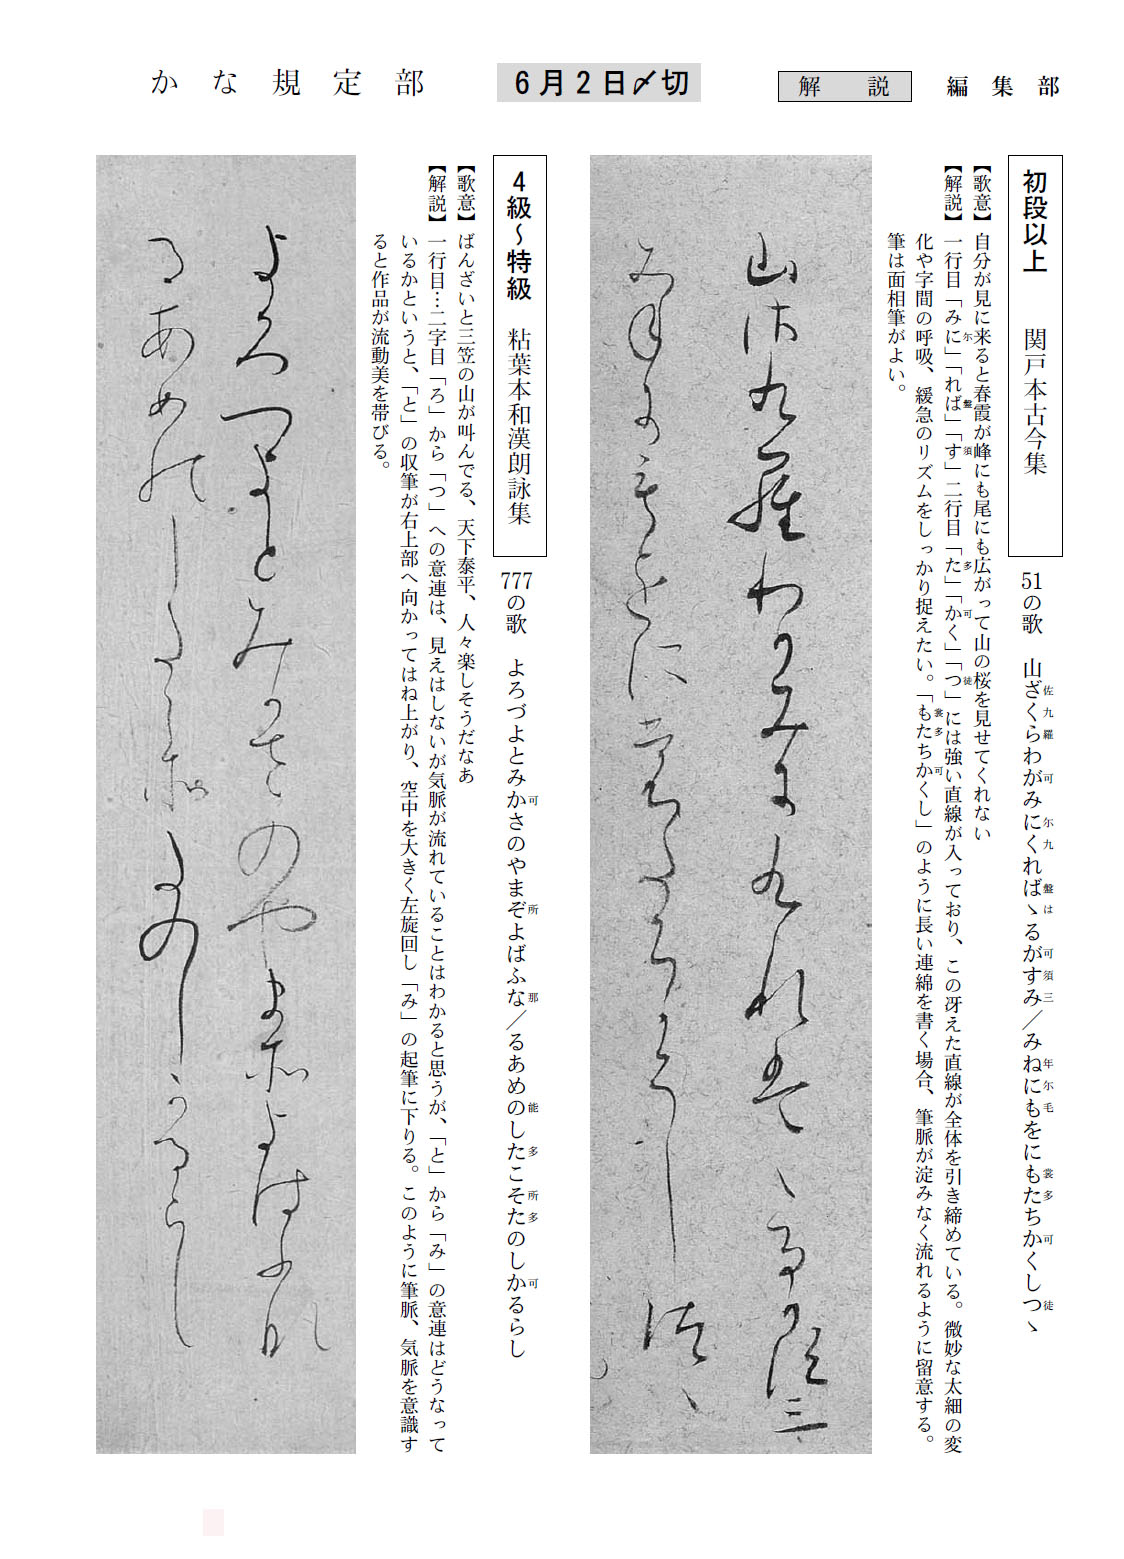 かな規定部
6月2日〆切
解説
編集部
初段以上 関戸本古今集
51の歌 山ざくらわがみにくればゝるがすみ／みねにもをにもたちかくしつゝ
佐九羅可尓九盤は可須三年尓毛裳多可徒
【歌意】自分が見に来ると春霞が峰にも尾にも広がって山の桜を見せてくれない
【解説】一行目「みに」「れば」「す」二行目「た」「かく」「つ」には強い直線が入っており、この冴えた直線が全体を引き締めている。微妙な太細の変
尓盤須多可徒
化や字間の呼吸、緩急のリズムをしっかり捉えたい。「もたちかくし」のように長い連綿を書く場合、筆脈が淀みなく流れるように留意する。
裳多可
筆は面相筆がよい。
山佐九羅わ可みに九れ盤ゝる可須三
みねに毛をに裳多ちかくし徒ゝ
4級～特級 粘葉本和漢朗詠集
777の歌 よろづよとみかさのやまぞよばふな／るあめのしたこそたのしかるらし
可所那能多所多可
【歌意】ばんざいと三笠の山が叫んでる、天下泰平、人々楽しそうだなあ
【解説】一行目…二字目「ろ」から「つ」への意連は、見えはしないが気脈が流れていることはわかると思うが、「と」から「み」の意連はどうなって
いるかというと、「と」の収筆が右上部へ向かってはね上がり、空中を大きく左旋回し「み」の起筆に下りる。このように筆脈、気脈を意識す
ると作品が流動美を帯びる。
よろつよとみ可さのやま所よはふ那
るあめ能し多こ所多のし可るらし